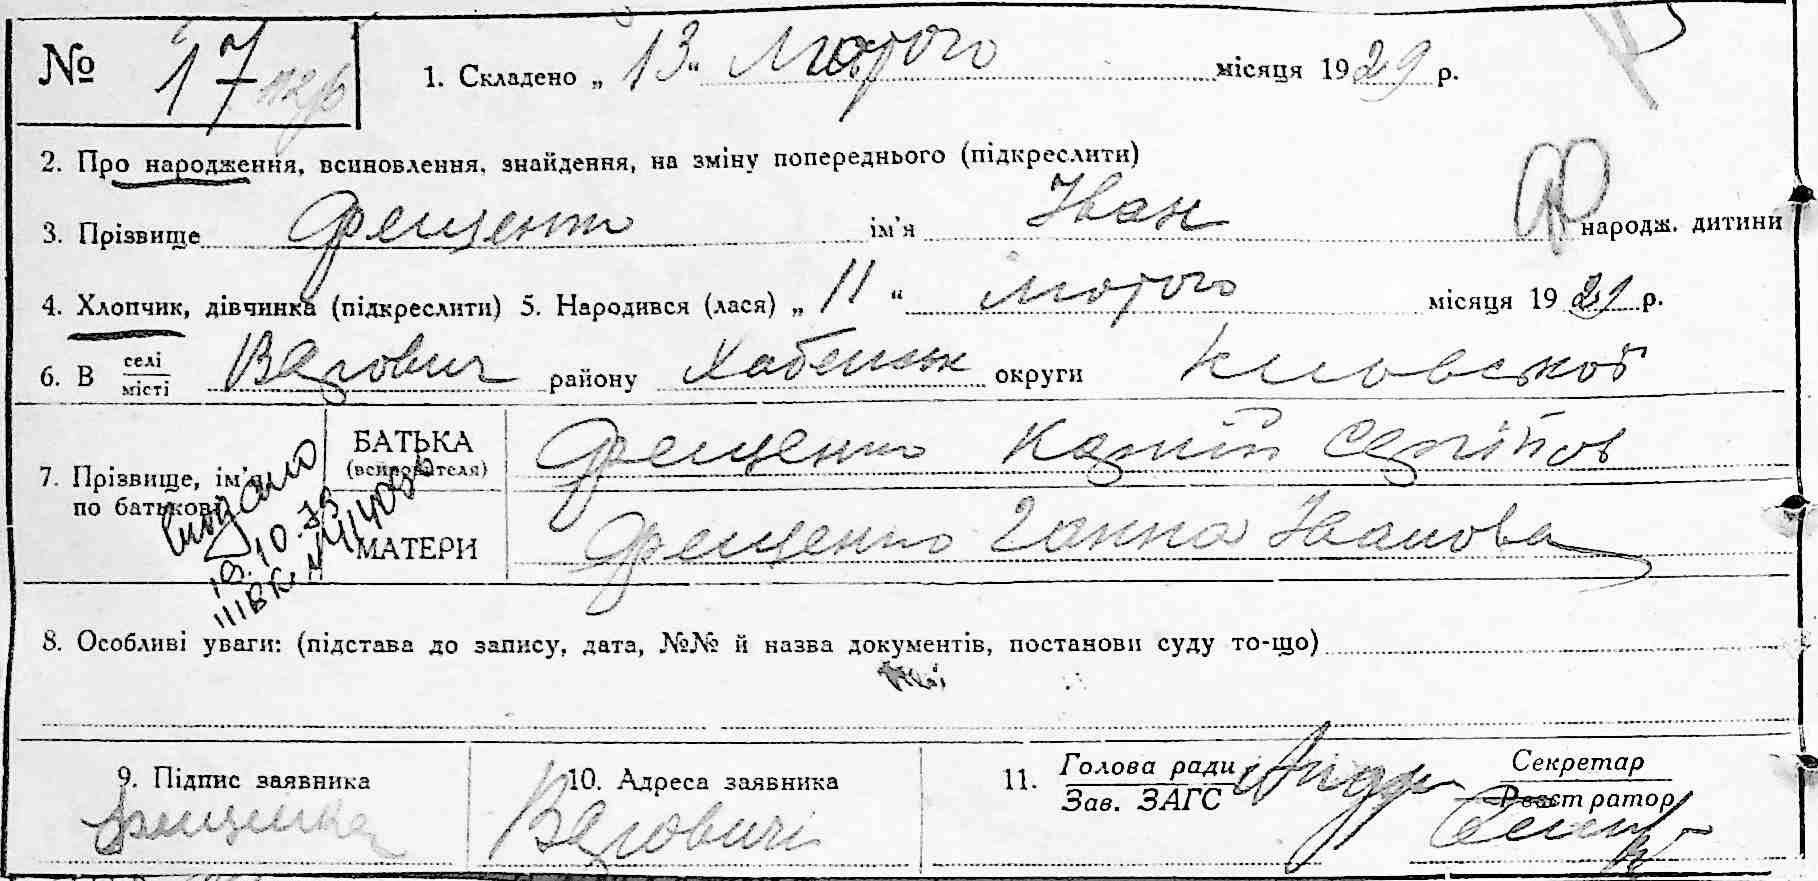 № 17
1. Складено „ 13 “ Лютого місяця 1929 р.
2. Про народження, всиновлення, знайдення, на зміну попереднього (підкреслити)
3. Прізвище Фещенко ім'я Іван народж. дитини
4. Хлопчик, дівчинка (підкреслити) 5. Народився (лася) „ 11 “ лютого місяця 1929 р.
6. В селі місті Вязовичі району Хабенськ округи Київської
7. Прізвище, ім'я по батькові
БАТЬКА Фещенко
МАТЕРИ Фещенко Ганна Іванова
видано
19.10.73
III ВК №
8. Особливі уваги: (підстава до запису, дата, №№ й назва документів, постанови суду то-що)
9. Підпис заявника
10. Адреса заявника
Вязовичі
11. Голова ради
Зав. ЗАГС
Секретар
Реєстратор